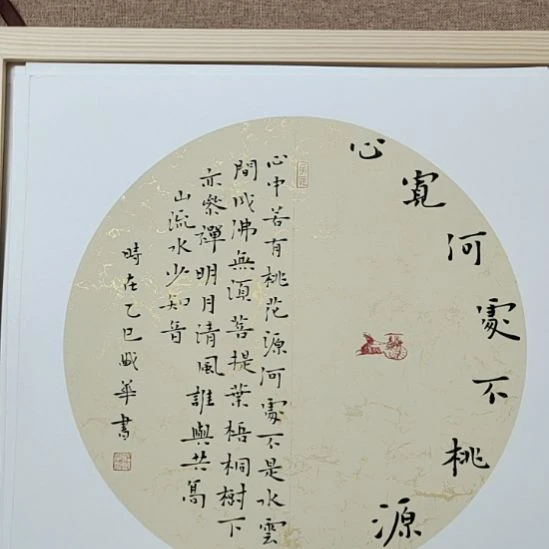 心寬何處不桃源
心中若有桃花源何處不是水雲
間成佛無須菩提葉梧桐樹下
亦參禪明月清風誰與共高
山流水少知音
時在乙巳 華書